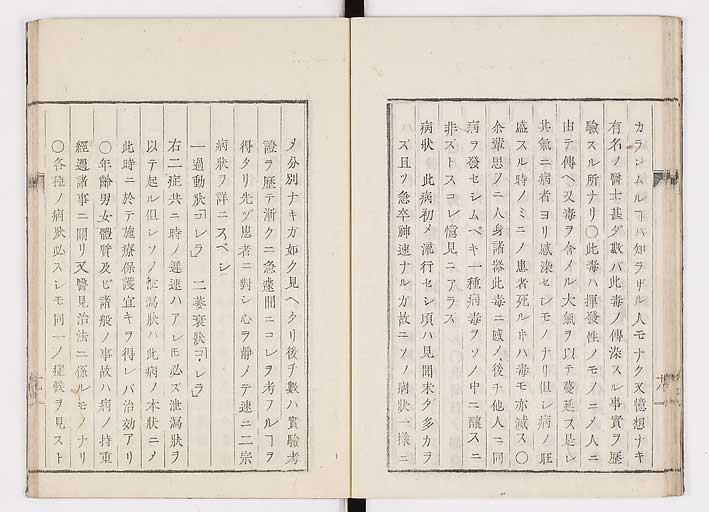 カランムルヿハ知ラザル人モナク又憶想ナキ
有名ノ醫士甚ダ數バ此毒ノ傳染スル事實ヲ歷
驗スル所ナリ〇此毒ハ揮發性ノモノニノ人ニ
由テ傳ヘ又毒ヲ含メル大氣ヲ以テ蔓延ス是レ
其氣ニ病者ヨリ感染セシモノナリ但シ病ノ旺
盛スル時ノミニノ患者死ルトハ毒モ亦滅ス〇
余輩思フニ人身諸器此毒ニ感ノ後チ他人ニ同
病ヲ發セシムベキ一種病毒ヲソノ中ニ釀スニ
非ズトスコレ憶見ニアラス
病狀 此病初メ流行セシ頃ハ見聞未ダ多カラ
ズ且ツ急卒神速ナルガ故ニソノ病狀一樣ニ
ノ分別ナキガ如ク見ヘタリ後チ數バ實驗考
證ヲ歷テ漸クニ急遽間ニコレヲ考フルヿヲ
得タリ先ヅ患者ニ對シ心ヲ靜メテ速ニ二宗
病狀ヲ詳ニスベシ
一過動狀「コレラ」 二萎衰狀「コレラ」
右二症共ニ時ノ遲速ハアレモ必ズ泄瀉狀ヲ
以テ起ル但シソノ泄瀉狀ハ此病ノ本狀ニノ
此時ニ於テ施療保護宜キヲ得レバ治効アリ
〇年齡男女體質及ビ諸般ノ事故ハ病ノ持重
經過諸事ニ關リ又醫見治法ニ係ルモノナリ
〇各種ノ病狀必スレモ同一ノ症候ヲ見スト